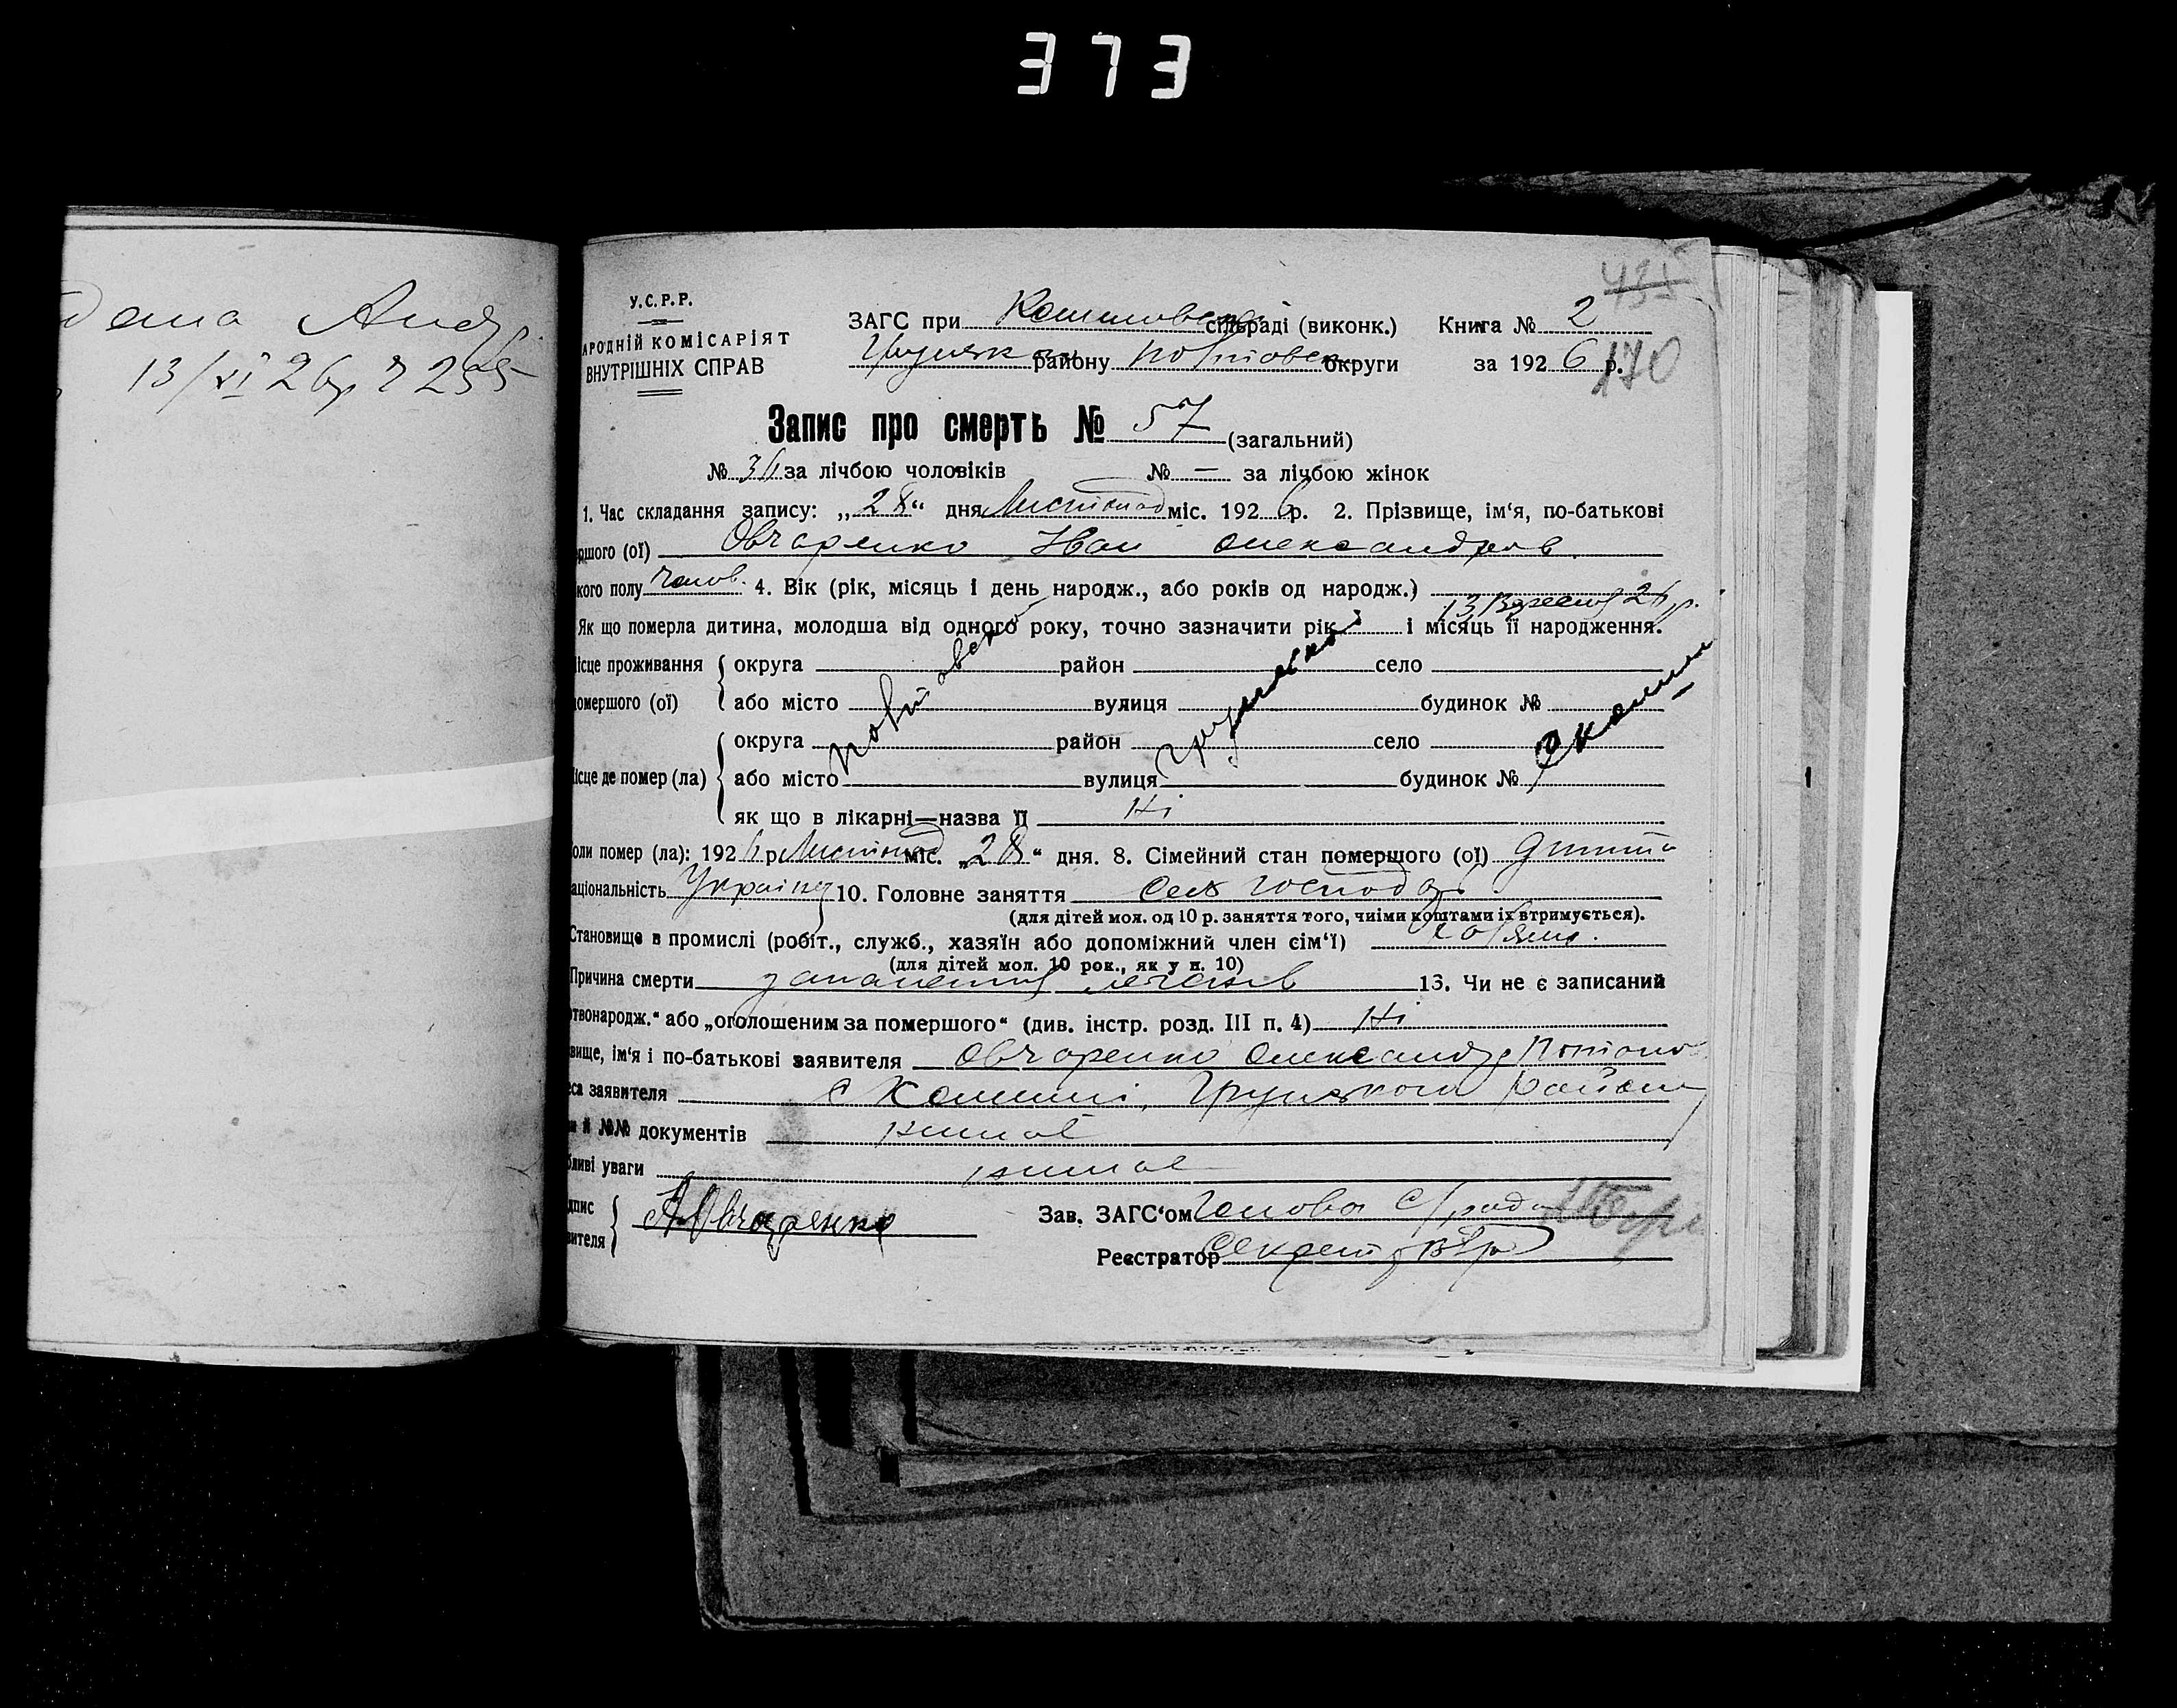 373
дана Андр.
13/XI 26р № 255
У.С.Р.Р.
АРОДНІЙ КОМІСАРІЯТ
ВНУТРІШНІХ СПРАВ
ЗАГС при сільраді (виконк.) Книга № 2
району округи за 1926 р.
435
170
Запис про смерть № 57 (загальний)
№ 36 за лічбою чоловіків № — за лічбою жінок
1. Час складання запису: „28“ дня Листопад міс. 1926 р. 2. Прізвище, ім‘я, по-батькові
ршого (ої) Овчаренко Іван Олександров
кого полу чолов. 4. Вік (рік, місяць і день народж., або років од народж.) 13 Вересня 26 р.
Як що померла дитина, молодша від одного року, точно зазначити рік і місяць її народження.
ісце проживання округа район село
омершого (ої) або місто вулиця будинок №
округа район село
ісце де помер (ла) або місто вулиця будинок №
як що в лікарні—назва її Ні
оли помер (ла): 1926 р. Листопад міс. „28“ дня. 8. Сімейний стан помершого (ої) дитина
аціональність Україн. 10. Головне заняття сель господар
(для дітей мол. од 10 р. заняття того, чиїми коштами їх втримується).
Становище в промислі (робіт., служб., хазяїн або допоміжний член сім‘ї)
(для дітей мол. 10 рок., як у п. 10)
Причина смерти запалення легенів 13. Чи не є записаний
твонародж.“ або „оголошеним за помершого“ (див. інстр. розд. III п. 4) Ні
вище, ім‘я і по-батькові заявителя Овчаренко Олександр
са заявителя с Грунського району
й №№ документів немає
бливі уваги немає
дпис
вителя А Овчаренко
Зав. ЗАГС‘ом Голова С/ради
Реєстратор Секрет